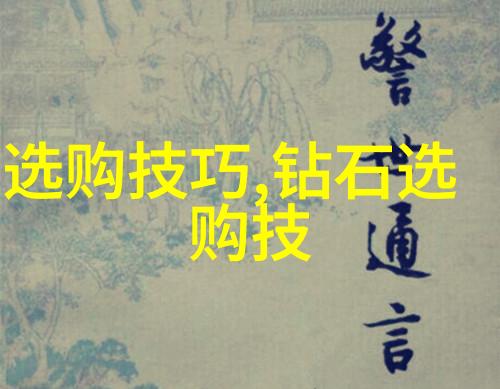 选购技巧,钻石选
购技
警世通言